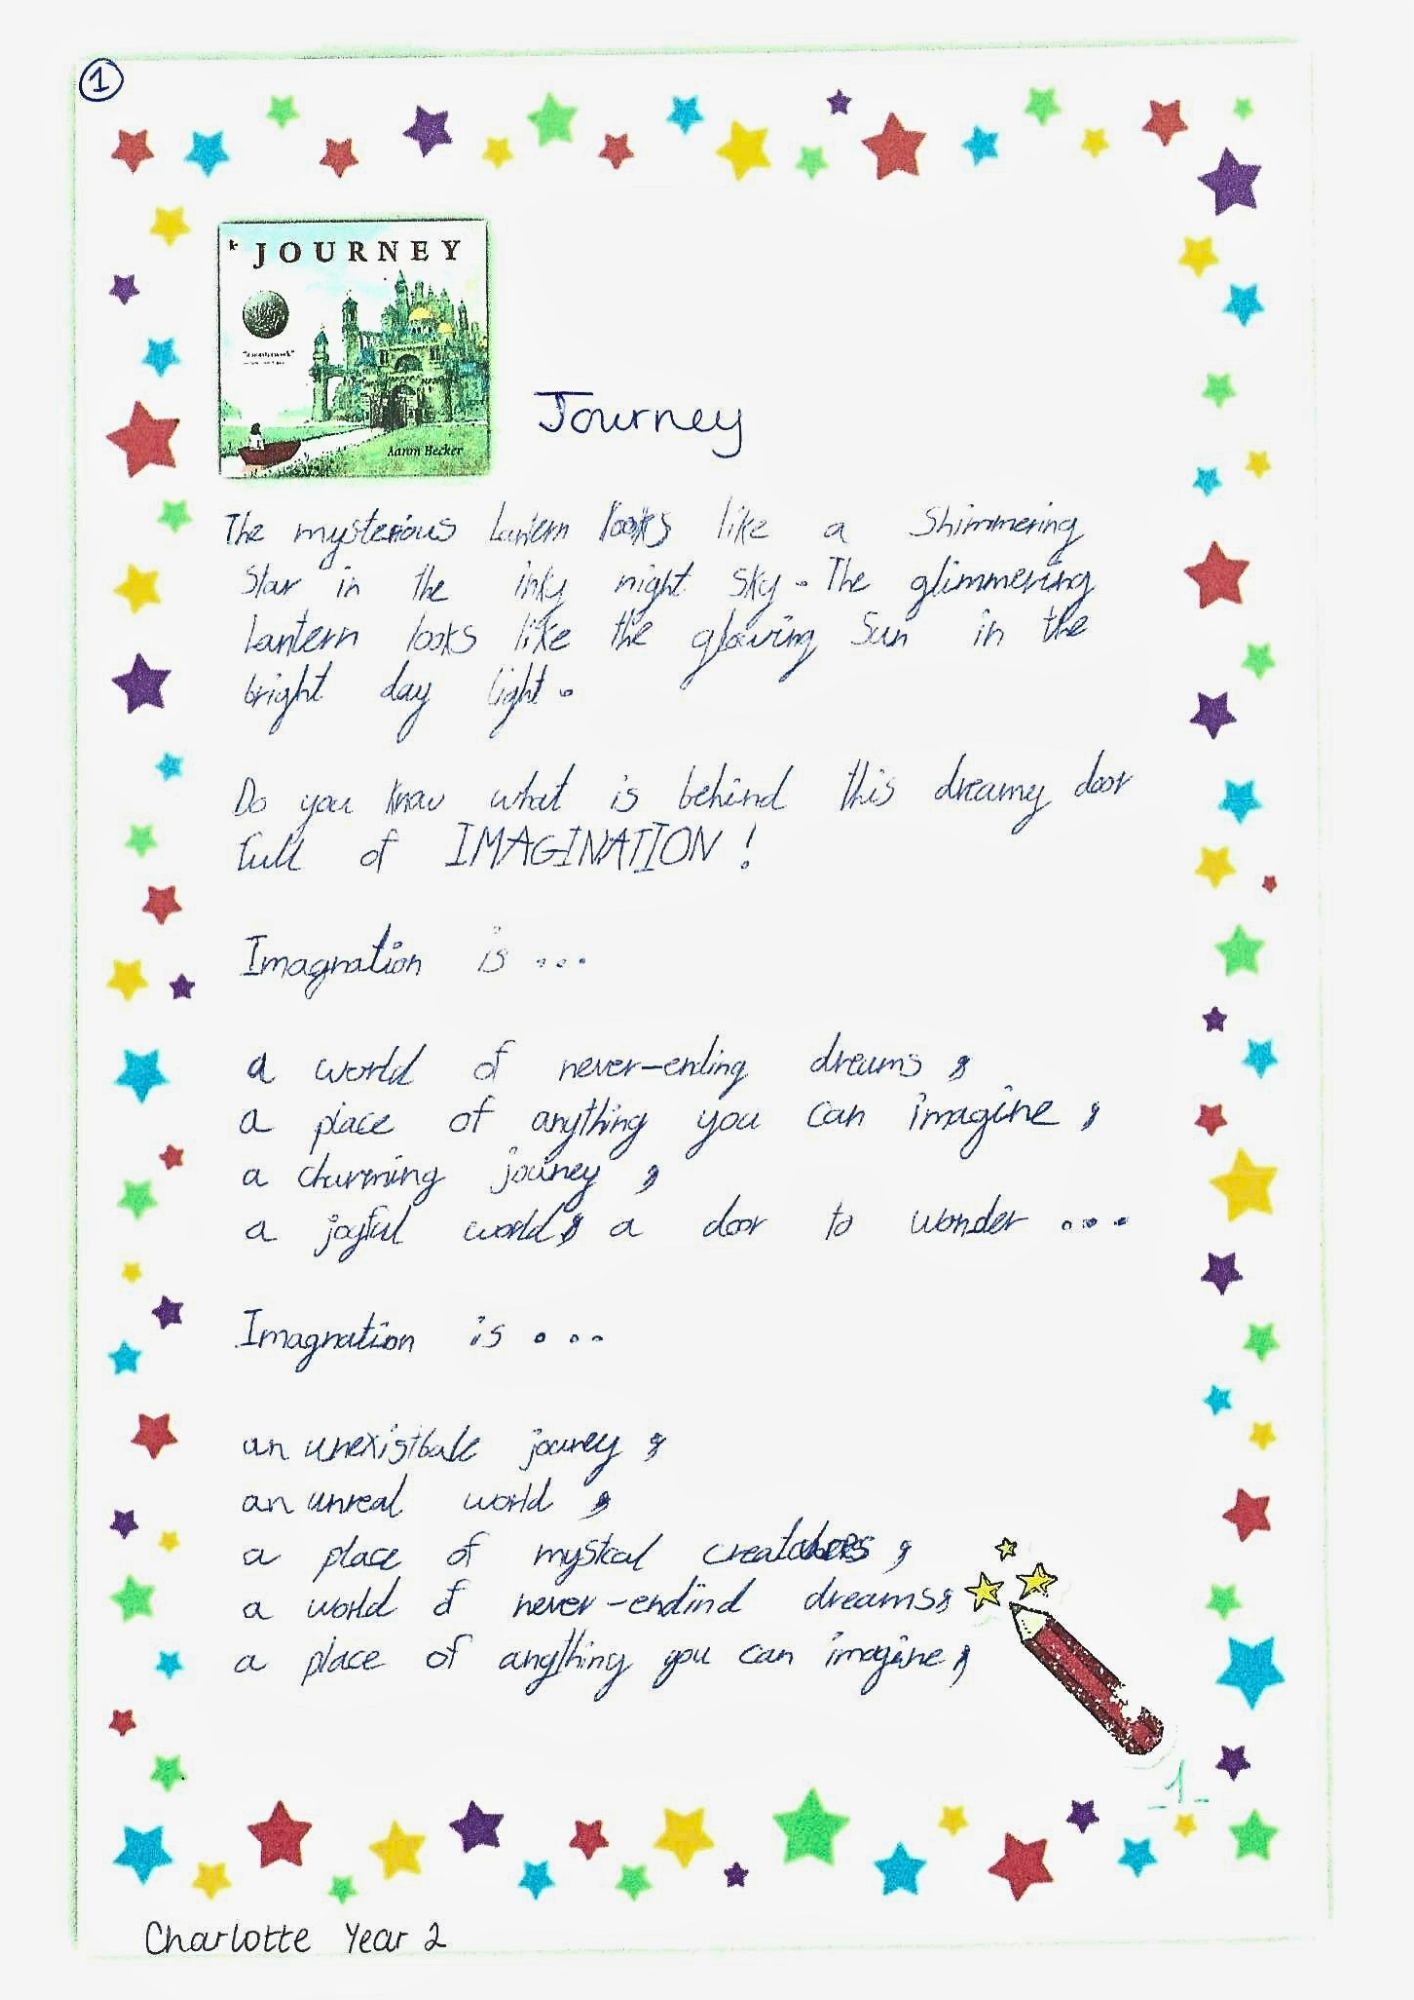 1
JOURNEY
Aaron Becker
Journey
The mysterious Lantern looks like a Shimmering
Star in the inky night sky. The glimmering
Lantern looks like the glowing Sun in the
bright day light.
Do you know what is behind this dreamy door
full of IMAGINATION!
Imagnation is ...
a world of never-ending dreams,
a place of anything you can imagine,
a charming jouney,
a joyful world, a door to wonder ...
Imagnation is ...
an unexistbale jouney,
an unreal world,
a place of mystcal
a world of never-endind dreams,
a place of anything you can imagine,
1
Charlotte Year 2